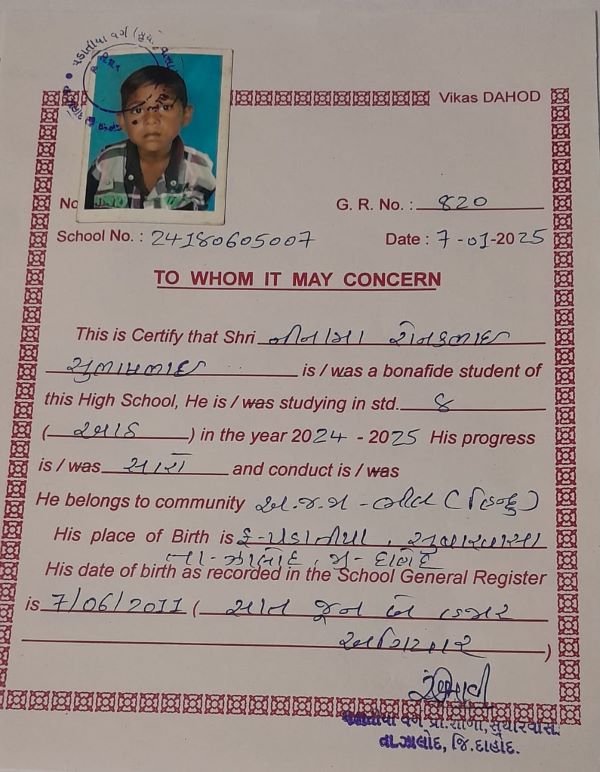 Vikas DAHOD
No
G. R. No. : 820
School No. : 24180605007 Date : 7-01-2025
TO WHOM IT MAY CONCERN
This is Certify that Shri નીનામા રોનકભાઇ
સુભાષભાઇ is / was a bonafide student of
this High School, He is / was studying in std. 8
( આઠ ) in the year 2024 - 2025 His progress
is / was સારો and conduct is / was
He belongs to community અ.જ.જા - ભીલ ( હિન્દુ )
His place of Birth is મુ- , સુથારવાસા
તા- ઝાલોદ , જિ- દાહોદ
His date of birth as recorded in the School General Register
is 7/06/2011 ( સાત જૂન બે હજાર
અગિયાર )
વર્ગ પ્રા.શાળા, સુથારવાસા
તા.ઝાલોદ, જિ.દાહોદ.